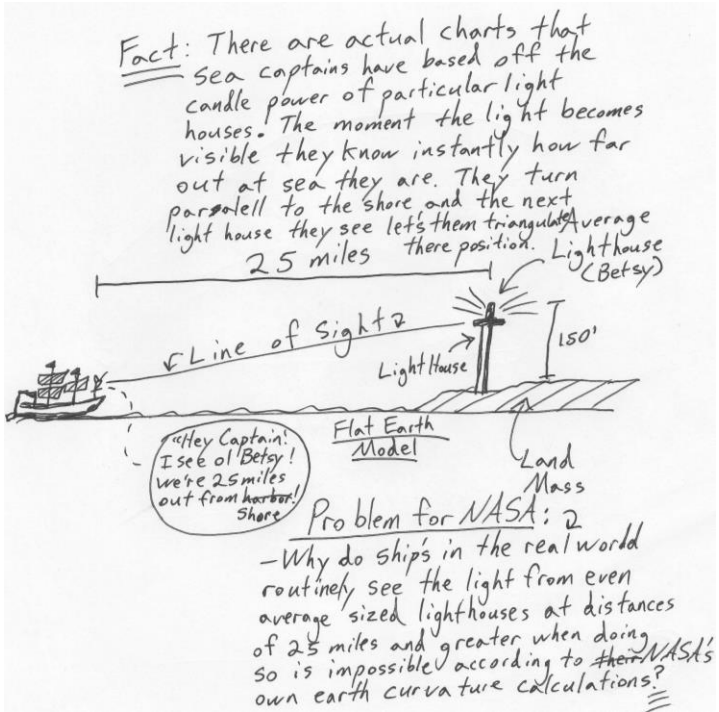 Fact: There are actual charts that
sea captains have based off the
candle power of particular light
houses. The moment the light becomes
visible they know instantly how far
out at sea they are. They turn
paralell to the shore and the next
light house they see let's them triangulate
there position.
Average
Lighthouse
(Betsy)
25 miles
Line of Sight
Light House
150'
Flat Earth
Model
Land
Mass
"Hey Captain!
I see ol Betsy!
we're 25 miles
out from harbor!
Shore
Problem for NASA:
- Why do ship's in the real world
routinely see the light from even
average sized lighthouses at distances
of 25 miles and greater when doing
so is impossible according to their NASA's
own earth curvature calculations?